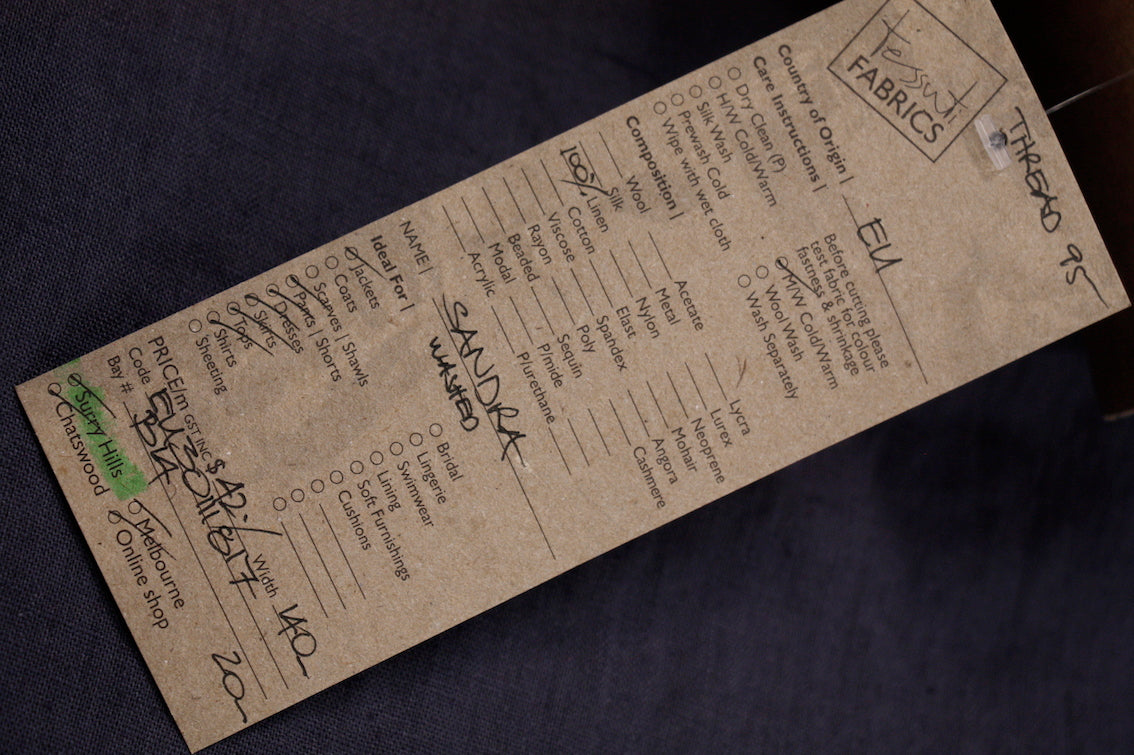 THREAD 95
tessuti
FABRICS
Country of Origin | EU
Care Instructions |
Before cutting please
test fabric for colour
fastness & shrinkage
Dry Clean (P)
H/W Cold/Warm
Silk Wash
Prewash Cold
Wipe with wet cloth
M/W Cold/Warm
Wool Wash
Wash Separately
Composition |
Wool
Silk
100% Linen
Cotton
Viscose
Rayon
Beaded
Modal
Acrylic
Acetate
Metal
Nylon
Elast
Spandex
Poly
Sequin
P/mide
P/urethane
Lycra
Lurex
Neoprene
Mohair
Angora
Cashmere
NAME | SANDRA
WASHED
Ideal For |
Jackets
Coats
Scarves | Shawls
Pants | Shorts
Dresses
Skirts
Tops
Shirts
Sheeting
Bridal
Lingerie
Swimwear
Lining
Soft Furnishings
Cushions
PRICE/m GST INC $42.- Width 140
Code
Bay #
Surry Hills
Chatswood
Melbourne
Online shop
20m